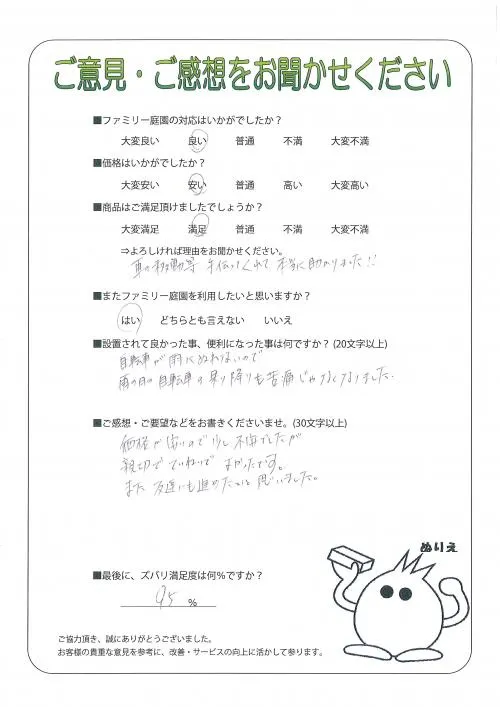 ご意見・ご感想をお聞かせください
■ファミリー庭園の対応はいかがでしたか？
大変良い 良い 普通 不満 大変不満
■価格はいかがでしたか？
大変安い 安い 普通 高い 大変高い
■商品はご満足頂けましたでしょうか？
大変満足 満足 普通 不満 大変不満
⇒よろしければ理由をお聞かせください。
車の移動等 手伝ってくれて 本当に助かりました!!
■またファミリー庭園を利用したいと思いますか？
はい どちらとも言えない いいえ
■設置されて良かった事、便利になった事は何ですか？(20文字以上)
自転車が雨にぬれないので
雨の日の自転車の乗り降りも苦痛じゃなくなりました.
■ご感想・ご要望などをお書きくださいませ。(30文字以上)
価格が安いので少し不安でしたが
親切でていねいで よかったです。
また 友達にも進めたいと思いました。
ぬりえ
■最後に、ズバリ満足度は何％ですか？
95 %
ご協力頂き、誠にありがとうございました。
お客様の貴重な意見を参考に、改善・サービスの向上に活かして参ります。